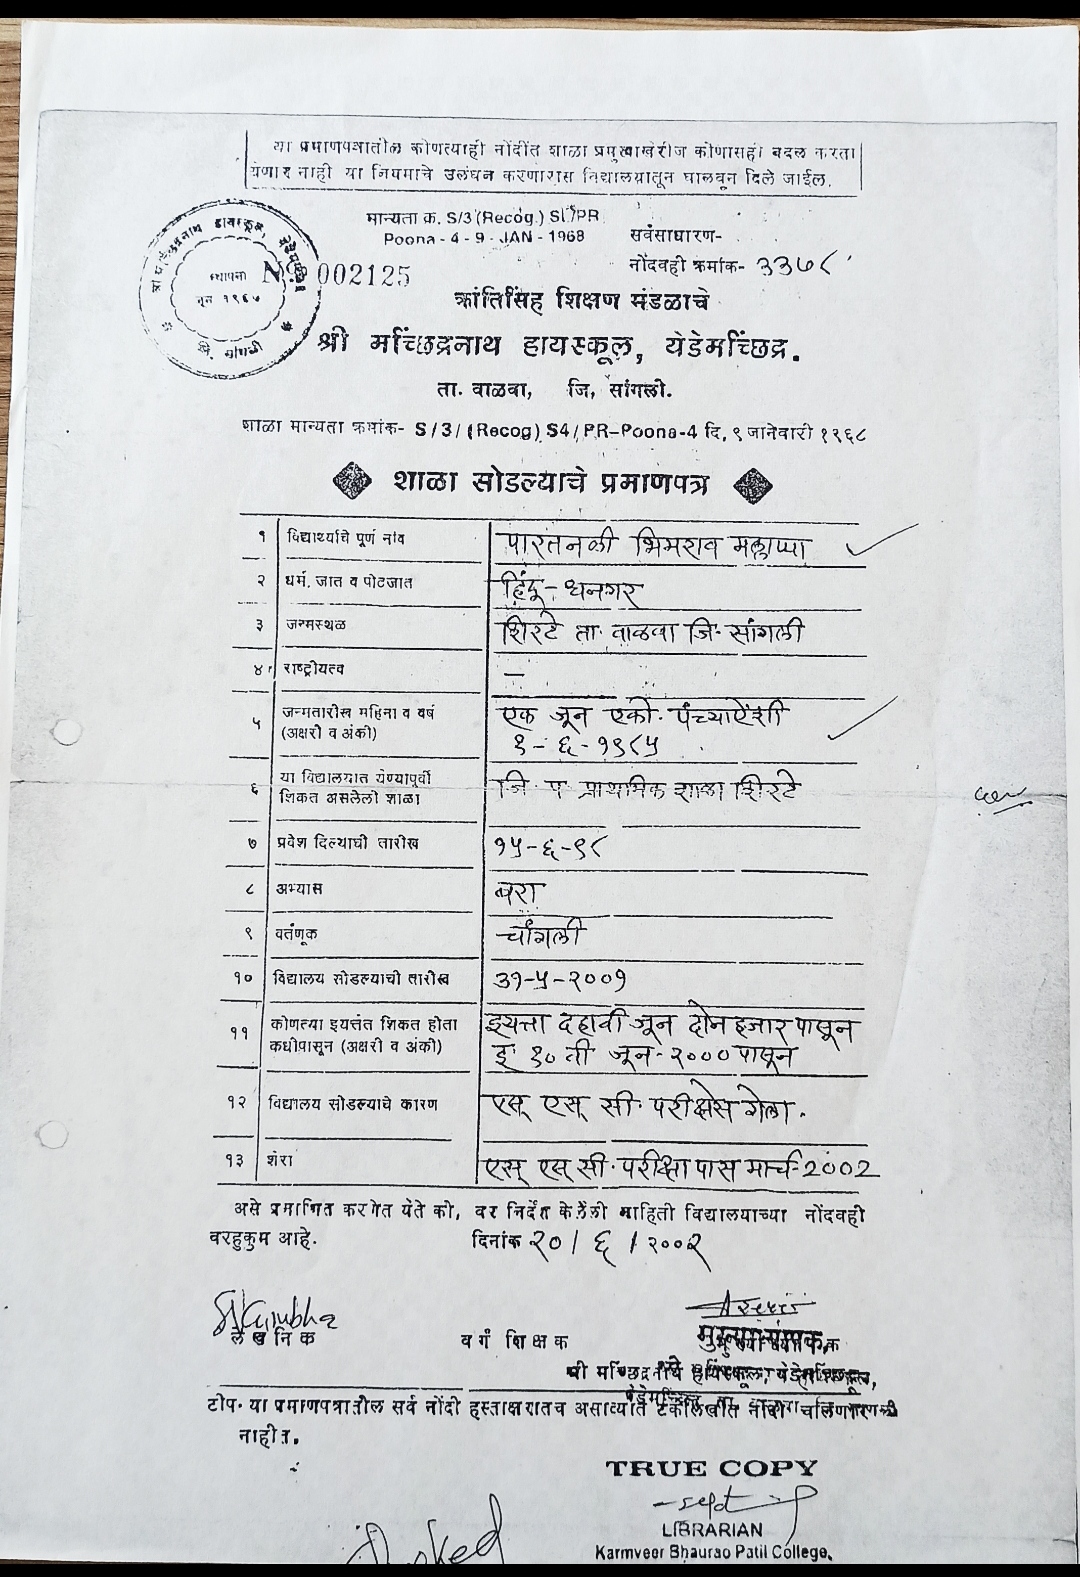 या प्रमाणपत्रातील कोणत्याही नोंदीत शाळा प्रमुखाखेरीज कोणासही बदल करता
येणार नाही या नियमाचे उलंघन करणारास विद्यालयातून घालवून दिले जाईल.
मान्यता क्र. S/3 (Recog.) SI./PR
Poona - 4 - 9 - JAN - 1968
सर्वसाधारण-
नोंदवही क्रमांक- ३३७८
स्थापना
जून १९६७
जि. सांगली
No. 002125
क्रांतिसिंह शिक्षण मंडळाचे
श्री मच्छिंद्रनाथ हायस्कूल, येडेमच्छिंद्र.
ता. वाळवा, जि, सांगली.
शाळा मान्यता क्रमांक- S/3/ (Recog) S4/ PR-Poona-4 दि, ९ जानेवारी १९६८
शाळा सोडल्याचे प्रमाणपत्र
१ विद्यार्थ्याचे पूर्ण नांव पारतनळी भिमराव मल्लाप्पा
२ धर्म, जात व पोटजात हिंदू - धनगर
३ जन्मस्थळ शिरटे ता. वाळवा जि. सांगली
४ राष्ट्रीयत्व —
५ जन्मतारीख महिना व वर्ष एक जून एको. पंच्याऐंशी
(अक्षरी व अंकी) १ - ६ - १९८५
६ या विद्यालयात येण्यापूर्वी जि प प्राथमिक शाळा शिरटे
शिकत असलेली शाळा
७ प्रवेश दिल्याची तारीख १५-६-९८
८ अभ्यास बरा
९ वर्तणूक चांगली
१० विद्यालय सोडल्याची तारीख ३१-५-२००१
११ कोणत्या इयत्तेत शिकत होता इयत्ता दहावी जून दोन हजार पासून
कधीपासून (अक्षरी व अंकी) इ १० वी जून - २००० पासून
१२ विद्यालय सोडल्याचे कारण एस् एस् सी. परीक्षेस गेला.
१३ शेरा एस् एस् सी. परीक्षा पास मार्च-2002
असे प्रमाणित करणेत येते की, वर निर्देश केलेली माहिती विद्यालयाच्या नोंदवही
बरहुकुम आहे. दिनांक २० / ६ / २००२
लेखनिक वर्ग शिक्षक मुख्याध्यापक,
श्री मच्छिंद्रनाथ हायस्कूल, येडेमच्छिंद्र,
टीप- या प्रमाणपत्रातील सर्व नोंदी हस्ताक्षरातच असाव्यात टंकलिखीत नोंदी चालणार
नाहीत.
TRUE COPY
LIBRARIAN
Karmveer Bhaurao Patil College,